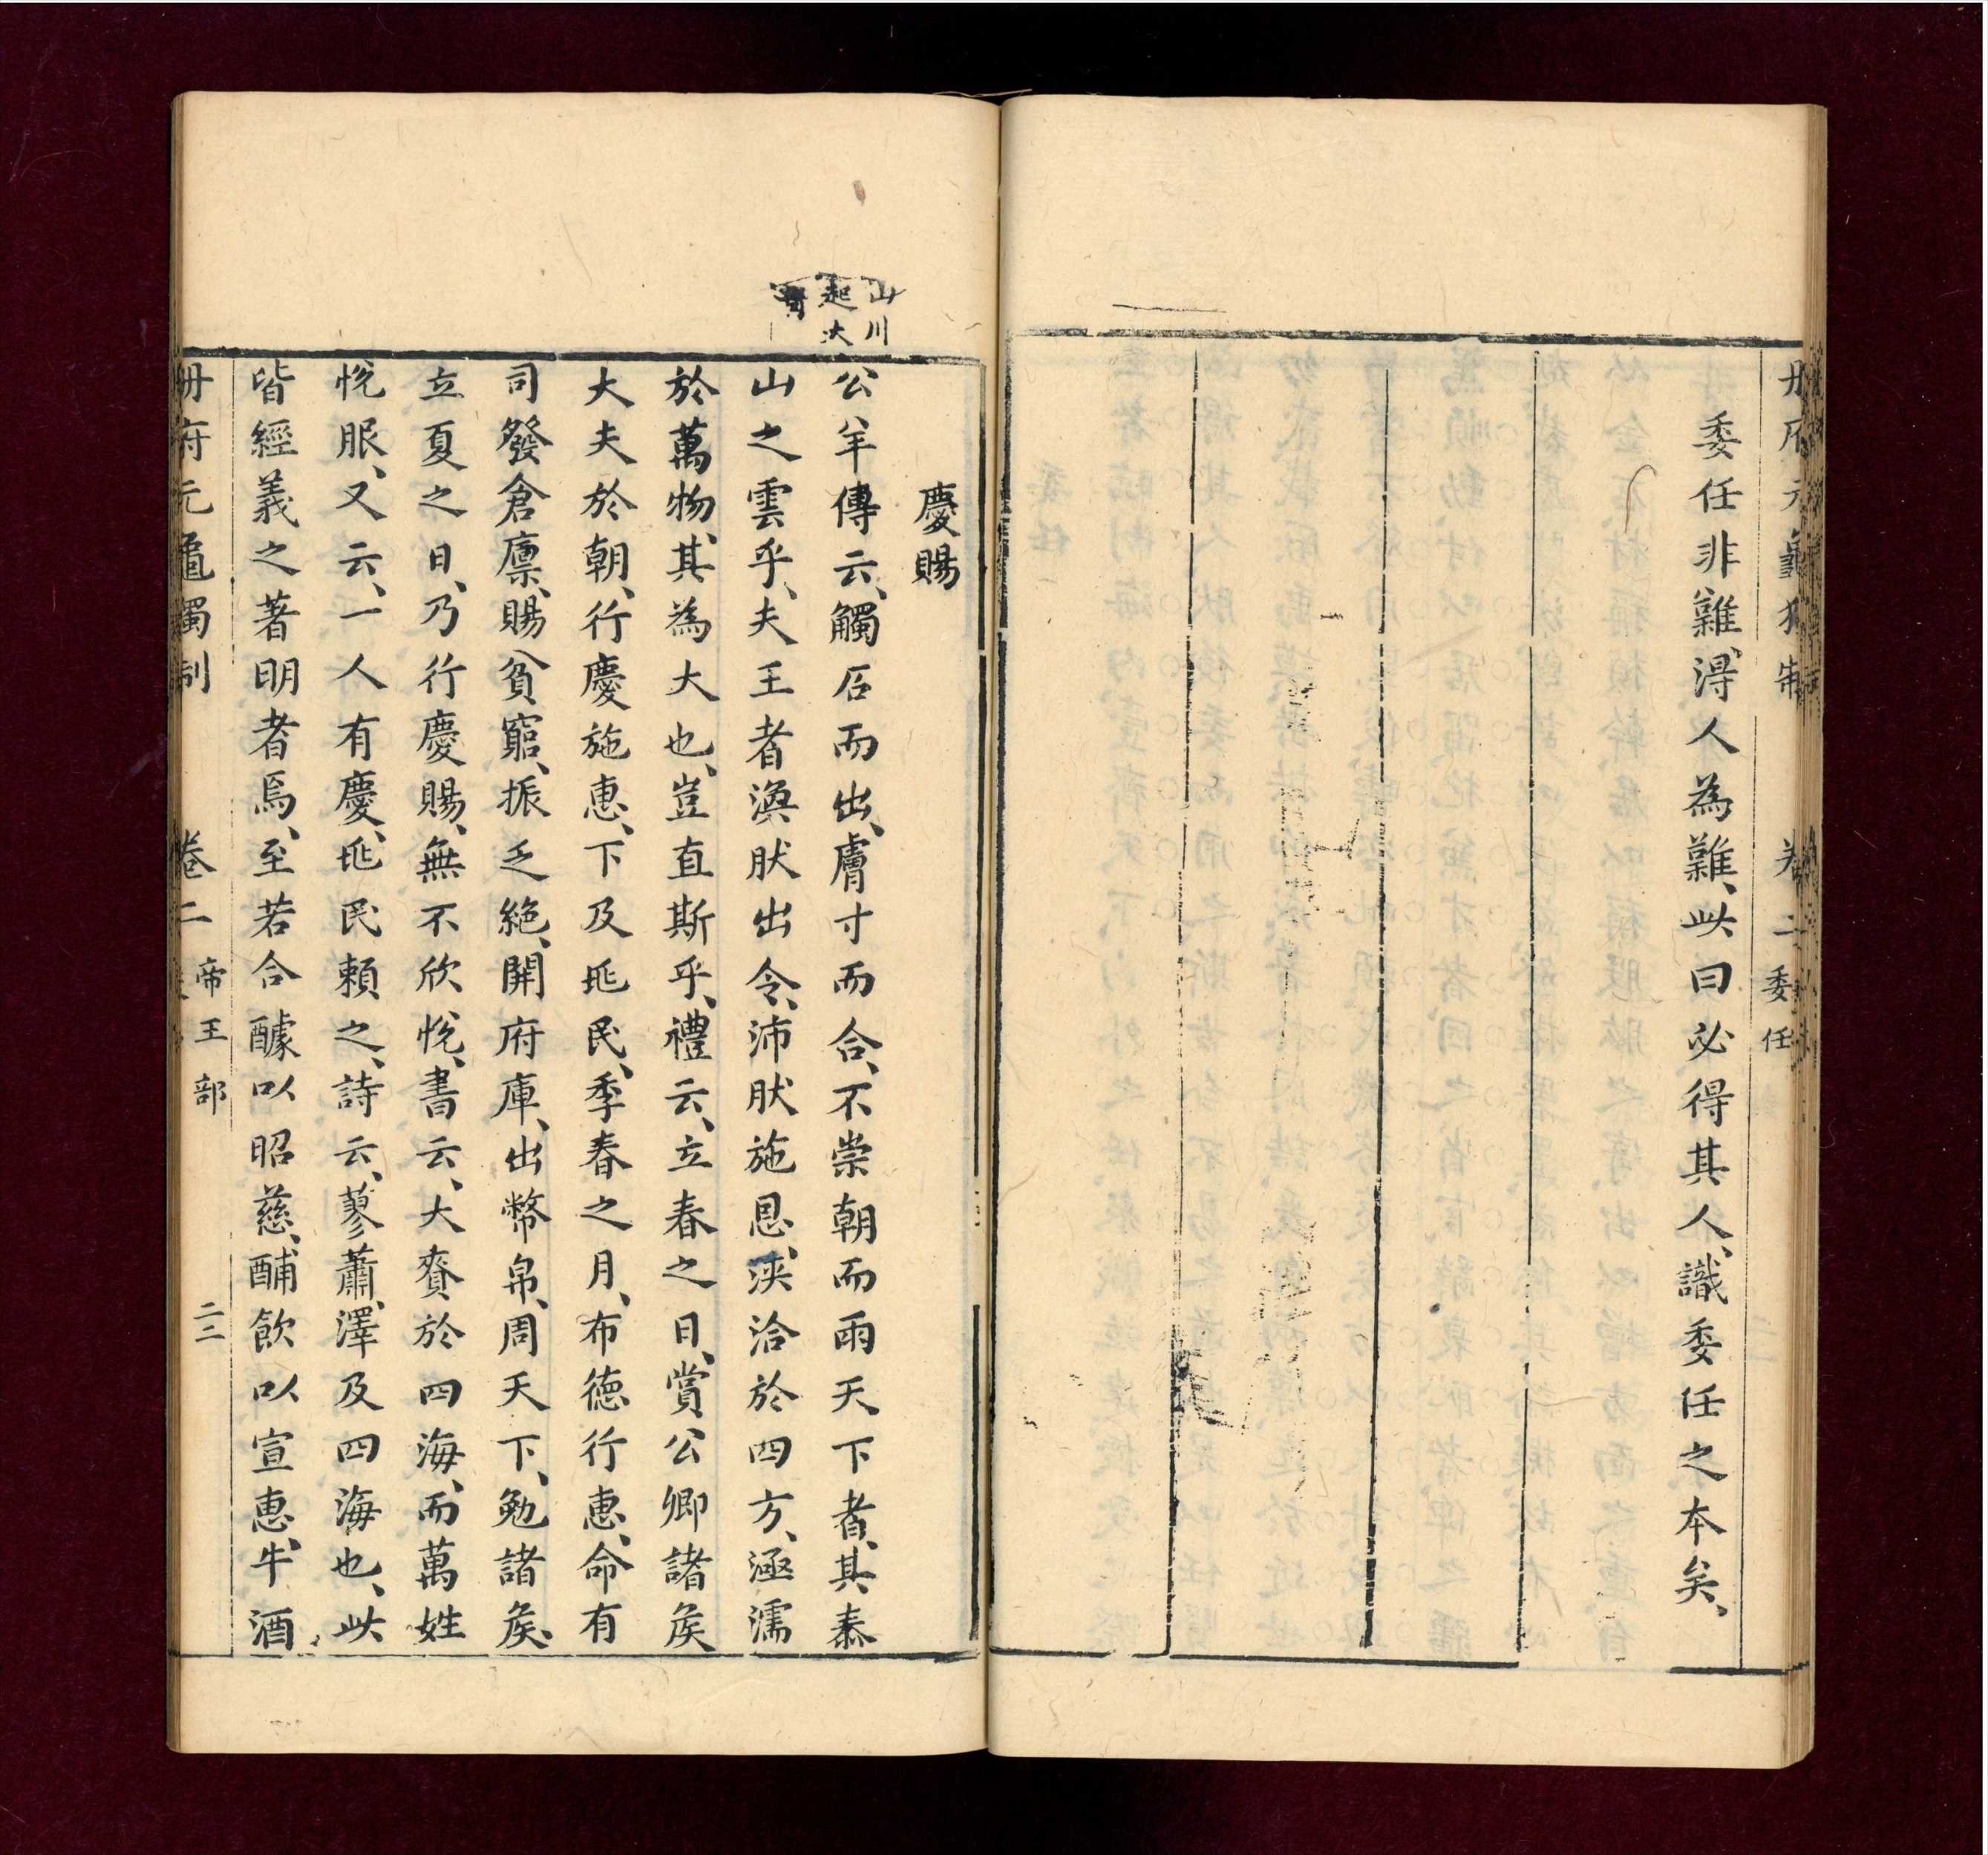 冊府元龜獨制 卷二 委任
委任非難、得人為難、此曰必得其人、識委任之本矣、
山川
起大
慶賜
公羊傳云、觸石而出、膚寸而合、不崇朝而雨天下者、其泰
山之雲乎、夫王者渙肰出令、沛肰施恩、浹洽於四方、涵濡
於萬物、其為大也、豈直斯乎、禮云、立春之日、賞公卿諸矦
大夫於朝、行慶施惠、下及兆民、季春之月、布徳行惠、命有
司發倉廩、賜貧窮、振乏絶、開府庫、出幣帛、周天下、勉諸矦、
立夏之日、乃行慶賜、無不欣悅、書云、大賚於四海、而萬姓
悅服、又云、一人有慶、兆民賴之、詩云、蓼蕭、澤及四海也、此
皆經義之著明者焉、至若合醵以昭慈、酺飲以宣惠、牛酒
冊府元龜獨制 卷二 帝王部 二二